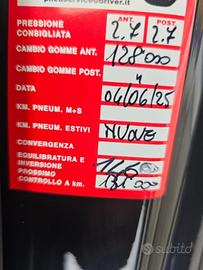 pneuservicedriver.it
ANT. POST.
PRESSIONE CONSIGLIATA 2.7 2.7
CAMBIO GOMME ANT. 128000
CAMBIO GOMME POST. "
DATA 04/06/25
KM. PNEUM. M+S
KM. PNEUM. ESTIVI NUOVE
CONVERGENZA
EQUILIBRATURA E
INVERSIONE
PROSSIMO
CONTROLLO A km. 000
subito